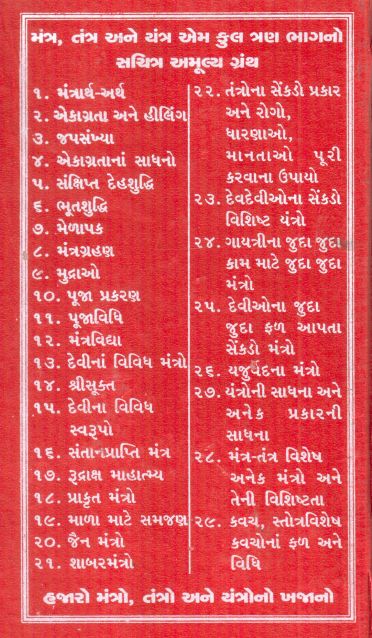 મંત્ર, તંત્ર અને યંત્ર એમ કુલ ત્રણ ભાગનો
સચિત્ર અમૂલ્ય ગ્રંથ
૧. મંત્રાર્થ-અર્થ
૨. એકાગ્રતા અને હીલિંગ
૩. જપસંખ્યા
૪. એકાગ્રતાનાં સાધનો
૫. સંક્ષિપ્ત દેહશુદ્ધિ
૬. ભૂતશુદ્ધિ
૭. મેળાપક
૮. મંત્રગ્રહણ
૯. મુદ્રાઓ
૧૦. પૂજા પ્રકરણ
૧૧. પૂજાવિધિ
૧૨. મંત્રવિદ્યા
૧૩. દેવીનાં વિવિધ મંત્રો
૧૪. શ્રીસુક્ત
૧૫. દેવીના વિવિધ
સ્વરૂપો
૧૬. સંતાનપ્રાપ્તિ મંત્ર
૧૭. રૂદ્રાક્ષ માહાત્મ્ય
૧૮. પ્રાકૃત મંત્રો
૧૯. માળા માટે સમજણ
૨૦. જૈન મંત્રો
૨૧. શાબરમંત્રો
૨૨. તંત્રોના સેંકડો પ્રકાર
અને રોગો,
ધારણાઓ,
માનતાઓ પૂરી
કરવાના ઉપાયો
૨૩. દેવદેવીઓના સેંકડો
વિશિષ્ટ યંત્રો
૨૪. ગાયત્રીના જુદા જુદા
કામ માટે જુદા જુદા
મંત્રો
૨૫. દેવીઓના જુદા
જુદા ફળ આપતા
સેંકડો મંત્રો
૨૬. યજુર્વેદના મંત્રો
૨૭. યંત્રોની સાધના અને
અનેક પ્રકારની
સાધના
૨૮. મંત્ર-તંત્ર વિશેષ
અનેક મંત્રો અને
તેની વિશિષ્ટતા
૨૯. કવચ, સ્તોત્રવિશેષ
કવચોનાં ફળ અને
વિધિ
હજારો મંત્રો, તંત્રો અને યંત્રોનો ખજાનો